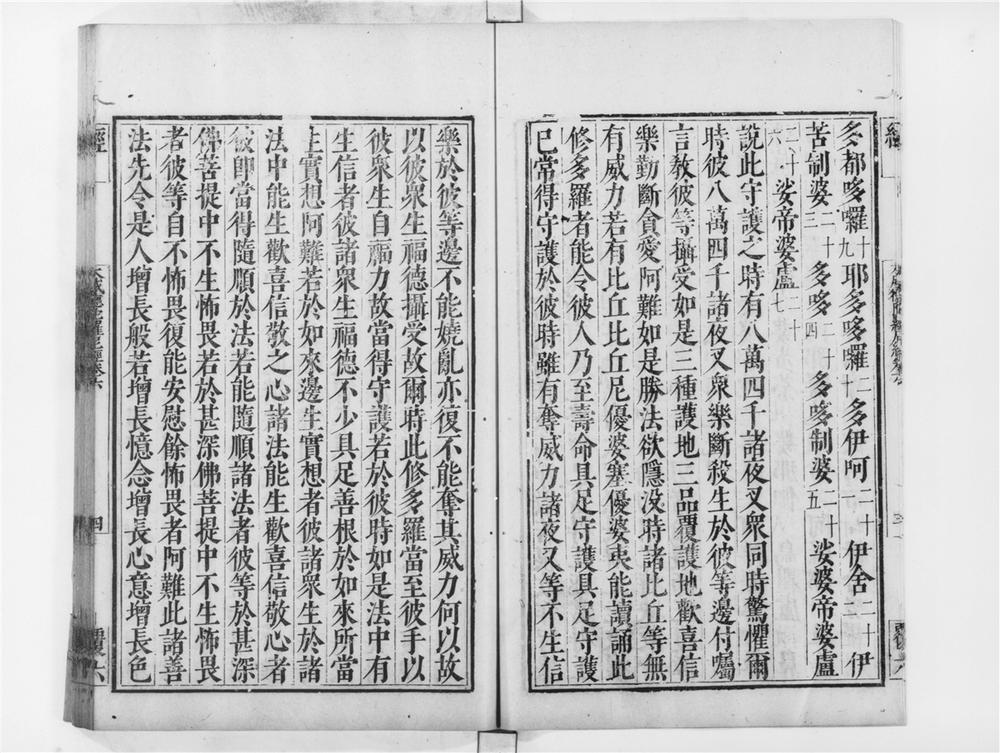 經 三 覆六
多都哆囉十九耶多哆囉二十多伊呵二十一伊舍二十二伊
苦制婆二十三多哆二十四多哆制婆二十五娑婆帝婆盧
二十六娑帝婆盧二十七
說此守護之時有八萬四千諸夜叉衆同時驚懼爾
時彼八萬四千諸夜叉衆樂斷殺生於彼等邊付囑
言教彼等攝受如是三種護地三品覆護地歡喜信
樂勤斷貪愛阿難如是勝法欲隱没時諸比丘等無
有威力若有比丘比丘尼優婆塞優婆夷能讀誦此
修多羅者能令彼人乃至壽命具足守護具足守護
已常得守護於彼時雖有奪威力諸夜叉等不生信
樂於彼等邊不能嬈亂亦復不能奪其威力何以故
以彼衆生福德攝受故爾時此修多羅當至彼手以
彼衆生自福力故當得守護若於彼時如是法中有
生信者彼諸衆生福德不少具足善根於如來所當
生實想阿難若於如來邊生實想者彼諸衆生於諸
法中能生歡喜信敬之心諸法能生歡喜信敬心者
彼即當得隨順於法若能隨順諸法者彼等於甚深
佛菩提中不生怖畏若於甚深佛菩提中不生怖畏
者彼等自不怖畏復能安慰餘怖畏者阿難此諸善
法先令是人增長般若增長憶念增長心意增長色
經 大威德陀羅尼經卷六 四 覆六